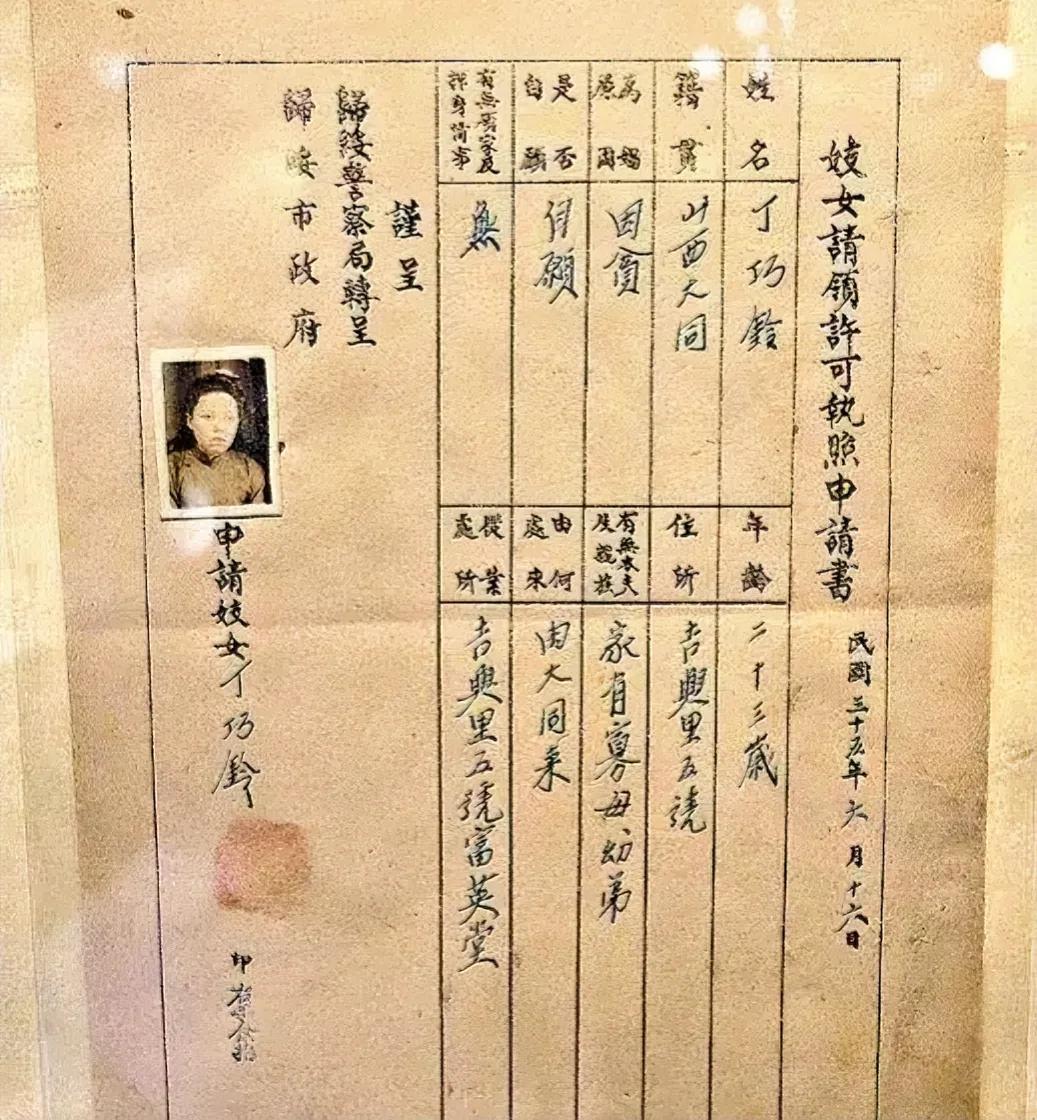 妓女請領許可執照申請書 民國三十五年六月十六日
姓名 丁巧鈴 年齡 二十三歲
籍貫 山西大同 住所 吉興里五號
為娼原因 因價 有無本夫及親族 家有寡母幼弟
是否自願 自願 由何處來 由大同來
有無 家及 身情事 無 業處所 吉興里五號富英堂
謹呈
歸綏警察局轉呈
歸綏市政府
申請妓女丁巧鈴
印